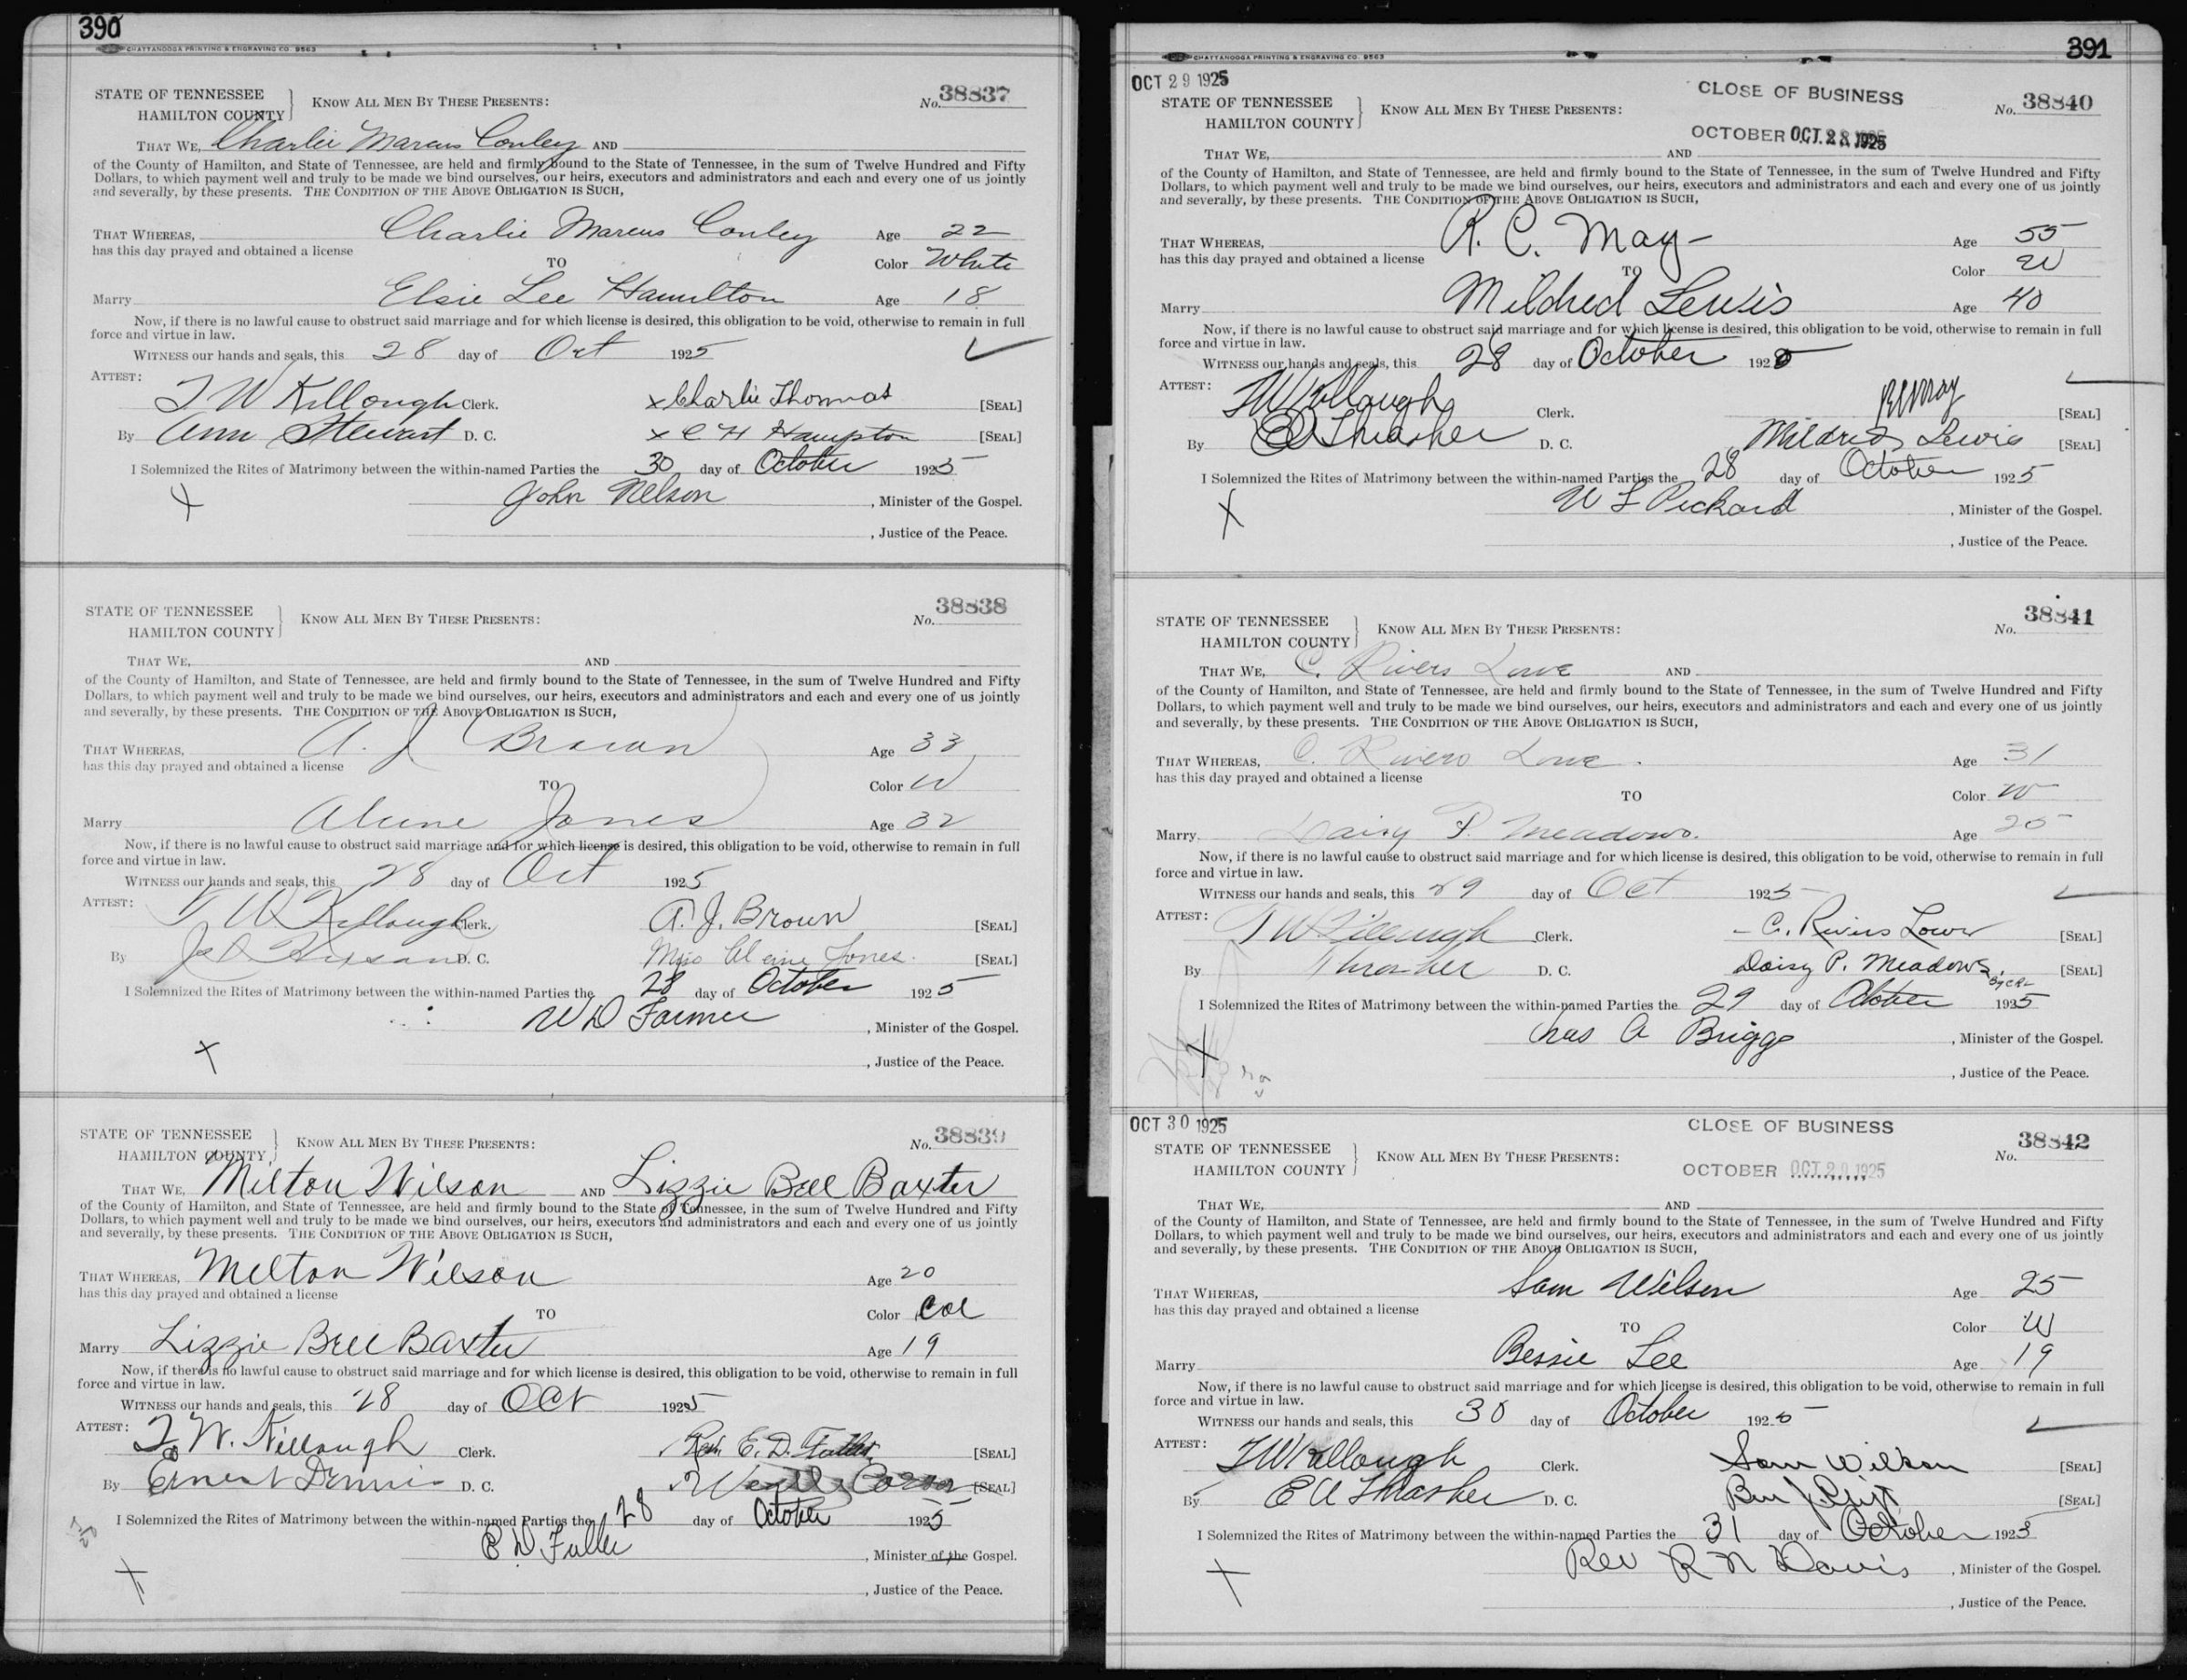 390
CHATTANOOGA PRINTING & ENGRAVING CO. 9563
STATE OF TENNESSEE
HAMILTON COUNTY
KNOW ALL MEN BY THESE PRESENTS:
No. 38837
THAT WE, Charlie Marcus Conley AND
of the County of Hamilton, and State of Tennessee, are held and firmly bound to the State of Tennessee, in the sum of Twelve Hundred and Fifty
Dollars, to which payment well and truly to be made we bind ourselves, our heirs, executors and administrators and each and every one of us jointly
and severally, by these presents. THE CONDITION OF THE ABOVE OBLIGATION IS SUCH,
THAT WHEREAS, Charlie Marcus Conley Age 22
has this day prayed and obtained a license
TO Color White
Marry Elsie Lee Hamilton Age 18
Now, if there is no lawful cause to obstruct said marriage and for which license is desired, this obligation to be void, otherwise to remain in full
force and virtue in law.
WITNESS our hands and seals, this 28 day of Oct 1925
ATTEST:
T W Killough Clerk. x Charlie Thomas [SEAL]
By Ann Stewart D. C. x C H Hampton [SEAL]
I Solemnized the Rites of Matrimony between the within-named Parties the 30 day of October 1925
X John Nelson, Minister of the Gospel.
, Justice of the Peace.
STATE OF TENNESSEE
HAMILTON COUNTY
KNOW ALL MEN BY THESE PRESENTS:
No. 38838
THAT WE, AND
of the County of Hamilton, and State of Tennessee, are held and firmly bound to the State of Tennessee, in the sum of Twelve Hundred and Fifty
Dollars, to which payment well and truly to be made we bind ourselves, our heirs, executors and administrators and each and every one of us jointly
and severally, by these presents. THE CONDITION OF THE ABOVE OBLIGATION IS SUCH,
THAT WHEREAS, A. J. Brown Age 33
has this day prayed and obtained a license
TO Color W
Marry Jones Age 32
Now, if there is no lawful cause to obstruct said marriage and for which license is desired, this obligation to be void, otherwise to remain in full
force and virtue in law.
WITNESS our hands and seals, this 28 day of Oct 1925
ATTEST:
T W Killough Clerk. A. J. Brown [SEAL]
By D. C. Jones. [SEAL]
I Solemnized the Rites of Matrimony between the within-named Parties the 28 day of October 1925
W D Farmer, Minister of the Gospel.
X , Justice of the Peace.
STATE OF TENNESSEE
HAMILTON COUNTY
KNOW ALL MEN BY THESE PRESENTS:
No. 38839
THAT WE, Milton Wilson AND Lizzie Bell Baxter
of the County of Hamilton, and State of Tennessee, are held and firmly bound to the State of Tennessee, in the sum of Twelve Hundred and Fifty
Dollars, to which payment well and truly to be made we bind ourselves, our heirs, executors and administrators and each and every one of us jointly
and severally, by these presents. THE CONDITION OF THE ABOVE OBLIGATION IS SUCH,
THAT WHEREAS, Milton Wilson Age 20
has this day prayed and obtained a license
TO Color Col
Marry Lizzie Bell Baxter Age 19
Now, if there is no lawful cause to obstruct said marriage and for which license is desired, this obligation to be void, otherwise to remain in full
force and virtue in law.
WITNESS our hands and seals, this 28 day of Oct 1925
ATTEST:
T. W. Killough Clerk. Rev. E. D. Fuller [SEAL]
By Ernest Dennis D. C. [SEAL]
I Solemnized the Rites of Matrimony between the within-named Parties the 28 day of October 1925
E D Fuller, Minister of the Gospel.
X , Justice of the Peace.
391
CHATTANOOGA PRINTING & ENGRAVING CO. 9563
OCT 29 1925
CLOSE OF BUSINESS
STATE OF TENNESSEE
HAMILTON COUNTY
KNOW ALL MEN BY THESE PRESENTS:
No. 38840
OCTOBER OCT. 28 1925
THAT WE, AND
of the County of Hamilton, and State of Tennessee, are held and firmly bound to the State of Tennessee, in the sum of Twelve Hundred and Fifty
Dollars, to which payment well and truly to be made we bind ourselves, our heirs, executors and administrators and each and every one of us jointly
and severally, by these presents. THE CONDITION OF THE ABOVE OBLIGATION IS SUCH,
THAT WHEREAS, R. C. May Age 55
has this day prayed and obtained a license
TO Color W
Marry Mildred Lewis Age 40
Now, if there is no lawful cause to obstruct said marriage and for which license is desired, this obligation to be void, otherwise to remain in full
force and virtue in law.
WITNESS our hands and seals, this 28 day of October 1925
ATTEST:
T W Killough Clerk. R C May [SEAL]
By E A Thrasher D. C. Mildred Lewis [SEAL]
I Solemnized the Rites of Matrimony between the within-named Parties the 28 day of October 1925
X W L Pickard, Minister of the Gospel.
, Justice of the Peace.
STATE OF TENNESSEE
HAMILTON COUNTY
KNOW ALL MEN BY THESE PRESENTS:
No. 38841
THAT WE, C. Rivers Lowe AND
of the County of Hamilton, and State of Tennessee, are held and firmly bound to the State of Tennessee, in the sum of Twelve Hundred and Fifty
Dollars, to which payment well and truly to be made we bind ourselves, our heirs, executors and administrators and each and every one of us jointly
and severally, by these presents. THE CONDITION OF THE ABOVE OBLIGATION IS SUCH,
THAT WHEREAS, C. Rivers Lowe. Age 31
has this day prayed and obtained a license
TO Color W
Marry Daisy P. Meadows. Age 25
Now, if there is no lawful cause to obstruct said marriage and for which license is desired, this obligation to be void, otherwise to remain in full
force and virtue in law.
WITNESS our hands and seals, this 29 day of Oct 1925
ATTEST:
T W Killough Clerk. C. Rivers Lowe [SEAL]
By Thrasher D. C. Daisy P. Meadows. [SEAL]
by CRL
I Solemnized the Rites of Matrimony between the within-named Parties the 29 day of October 1925
X Chas A Briggs, Minister of the Gospel.
, Justice of the Peace.
OCT 30 1925
CLOSE OF BUSINESS
STATE OF TENNESSEE
HAMILTON COUNTY
KNOW ALL MEN BY THESE PRESENTS:
No. 38842
OCTOBER OCT. 29 1925
THAT WE, AND
of the County of Hamilton, and State of Tennessee, are held and firmly bound to the State of Tennessee, in the sum of Twelve Hundred and Fifty
Dollars, to which payment well and truly to be made we bind ourselves, our heirs, executors and administrators and each and every one of us jointly
and severally, by these presents. THE CONDITION OF THE ABOVE OBLIGATION IS SUCH,
THAT WHEREAS, Sam Wilson Age 25
has this day prayed and obtained a license
TO Color W
Marry Bessie Lee Age 19
Now, if there is no lawful cause to obstruct said marriage and for which license is desired, this obligation to be void, otherwise to remain in full
force and virtue in law.
WITNESS our hands and seals, this 30 day of October 1925
ATTEST:
T W Killough Clerk. Sam Wilson [SEAL]
By E A Thrasher D. C. Ben J. [SEAL]
I Solemnized the Rites of Matrimony between the within-named Parties the 31 day of October 1925
X Rev R N Davis, Minister of the Gospel.
, Justice of the Peace.